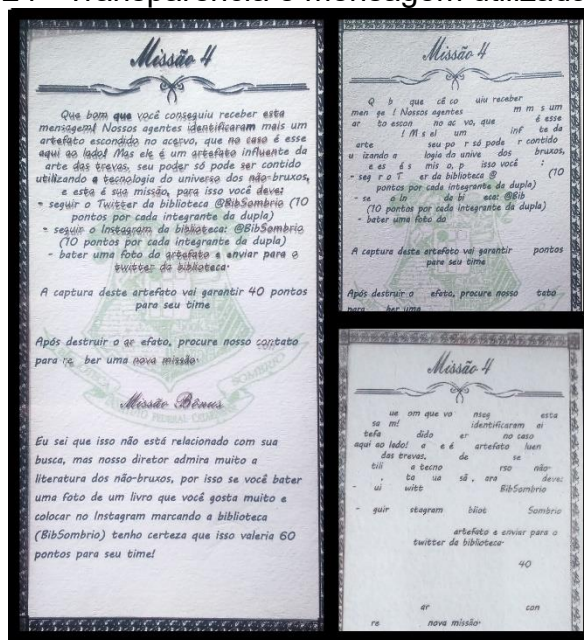 Transparência e mensagem utilizada
Missão 4
Que bom que você conseguiu receber esta
mensagem! Nossos agentes identificaram mais um
artefato escondido no acervo, que no caso é esse
aqui ao lado! Mas ele é um artefato influente da
arte das trevas, seu poder só pode ser contido
utilizando a tecnologia do universo dos não-bruxos,
e esta é sua missão, para isso você deve:
- seguir o Twitter da biblioteca @BibSombrio (10
pontos por cada integrante da dupla)
- seguir o Instagram da biblioteca: @BibSombrio
(10 pontos por cada integrante da dupla)
- bater uma foto do artefato e enviar para o
twitter da biblioteca.
A captura deste artefato vai garantir 40 pontos
para seu time
Após destruir o ar efato, procure nosso contato
para re ber uma nova missão.
Missão Bônus
Eu sei que isso não está relacionado com sua
busca, mas nosso diretor admira muito a
literatura dos não-bruxos, por isso se você bater
uma foto de um livro que você gosta muito e
colocar no Instagram marcando a biblioteca
(BibSombrio) tenho certeza que isso valeria 60
pontos para seu time!
Missão 4
Q b que cê co uiu receber
men ge ! Nossos agentes m m s um
ar to escon no ac vo, que é esse
! M s el um inf te da
arte seu po r só pode r contido
u izando a logia do unive dos bruxos,
e es é s mis o, p isso você :
- seg r o T er da biblioteca @ (10
pontos por cada integrante da dupla)
- se o In da bi eca: @Bib
(10 pontos por cada integrante da dupla)
- bater uma foto do
A captura deste artefato vai garantir pontos
para seu time
Após destruir o efato, procure nosso tato
para ber uma
Missão 4
ue om que vo nseg esta
sa m! identificaram ai
tefa dido er no caso
aqui ao lado! a e é artefato luen
das trevas, de se
tili a tecno rso não-
, ta ua sã , ara deve:
- ui witt BibSombrio
- guir stagram bliot Sombrio
artefato e enviar para o
twitter da biblioteca.
40
ar con
re nova missão.